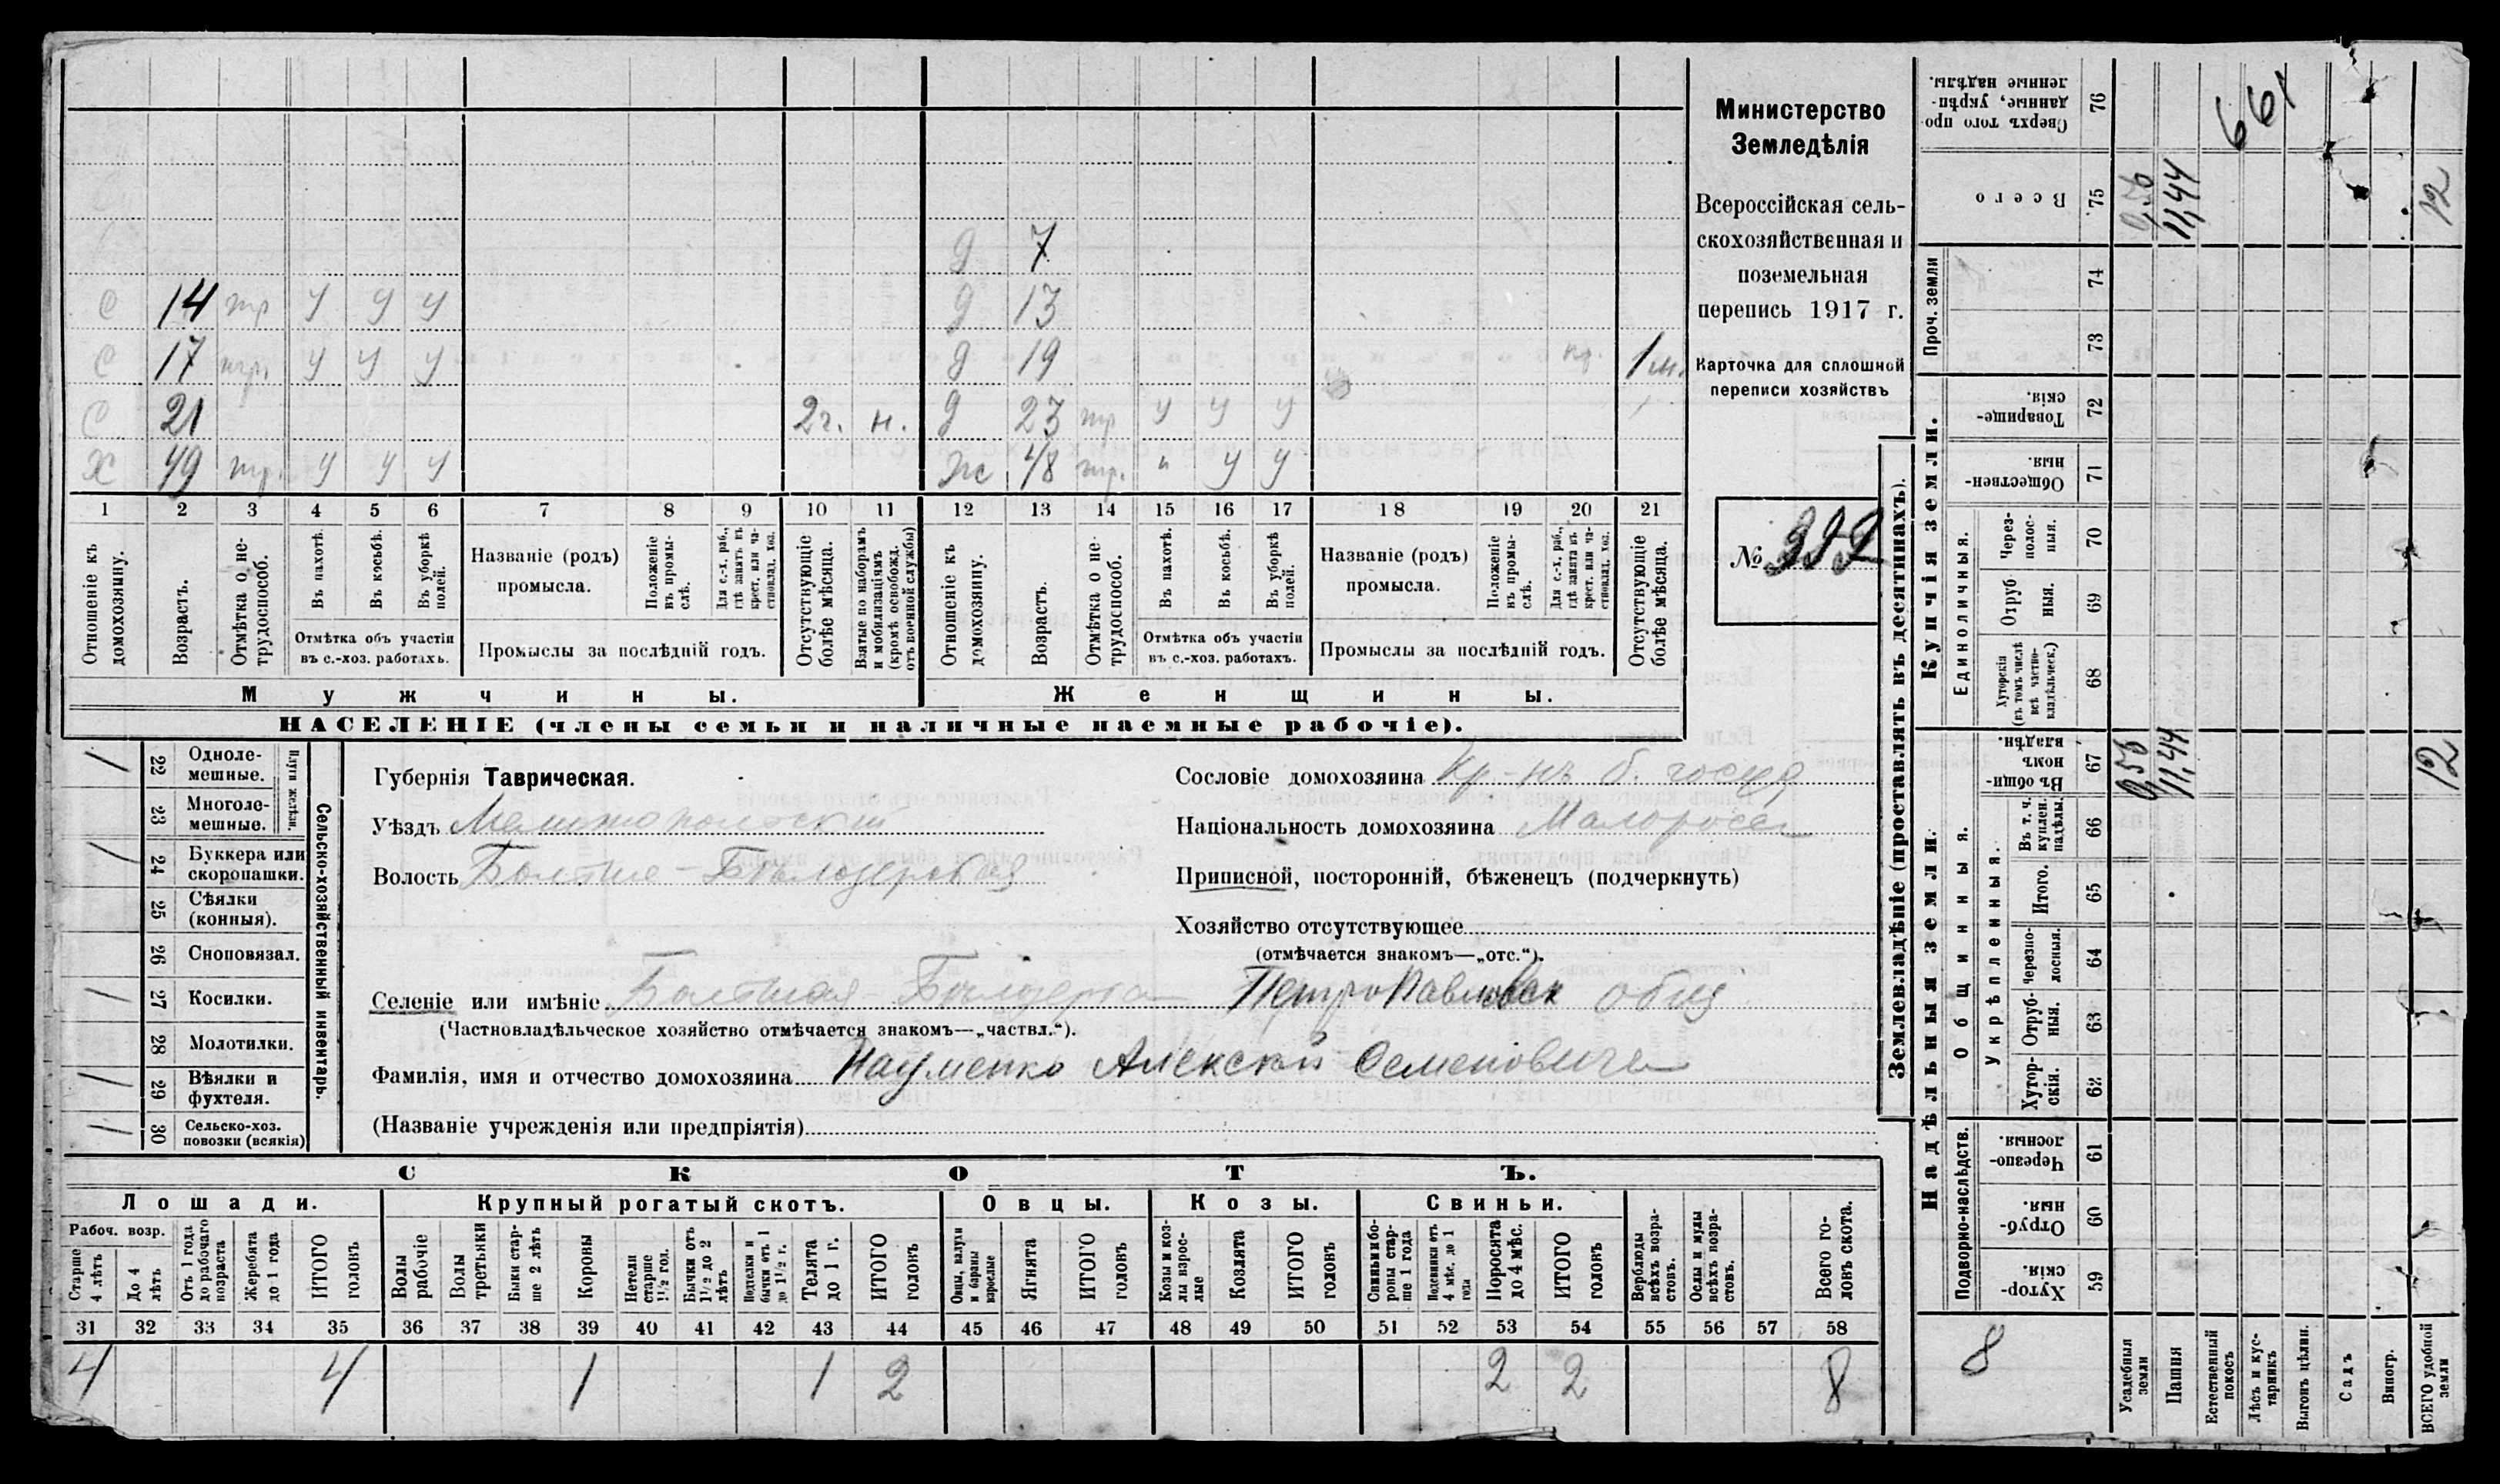 д 7
с 14 тр у у у д 13
с 17 тр. у у у д 19 1 м.
с 21 2 г. н. д 23 тр у у у
х 49 тр. у у у ж 48 тр. " у у
1 2 3 4 5 6 7 8 9 10 11 12 13 14 15 16 17 18 19 20 21
Отношеніе къ домохозяину.
Возрастъ.
Отмѣтка о нетрудоспособ.
Въ пахотѣ.
Въ косьбѣ.
Въ уборкѣ полей.
Отмѣтка объ участіи
въ с.-хоз. работахъ.
Названіе (родъ)
промысла.
Положеніе въ промыслѣ.
Для с.-х. раб., гдѣ занятъ въ крест. или частновлад. хоз.
Промыслы за послѣдній годъ.
Отсутствующіе болѣе мѣсяца.
Взятые по наборамъ и мобилизаціямъ (кромѣ освобожд. отъ военной службы)
Отношеніе къ домохозяину.
Возрастъ.
Отмѣтка о нетрудоспособ.
Въ пахотѣ.
Въ косьбѣ.
Въ уборкѣ полей.
Отмѣтка объ участіи
въ с.-хоз. работахъ.
Названіе (родъ)
промысла.
Положеніе въ промыслѣ.
Для с.-х. раб., гдѣ занята въ крест. или частновлад. хоз.
Промыслы за послѣдній годъ.
Отсутствующіе болѣе мѣсяца.
Мужчины. Женщины.
НАСЕЛЕНІЕ (члены семьи и наличные наемные рабочіе).
Министерство
Земледѣлія
Всероссійская сель-
скохозяйственная и
поземельная
перепись 1917 г.
Карточка для сплошной
переписи хозяйствъ
№
Сельско-хозяйственный инвентарь.
Плуги желѣзн.
/ 22 Одноле-
мешные.
23 Многоле-
мешные.
/ 24 Буккера или
скоропашки.
25 Сѣялки
(конныя).
26 Сноповязал.
/ 27 Косилки.
28 Молотилки.
/ 29 Вѣялки и
фухтеля.
/ 30 Сельско-хоз.
повозки (всякія)
Губернія Таврическая.
Уѣздъ Мелитопольскій
Волость Больше-Бѣлозерская
Сословіе домохозяина Кр-нъ б. госуд
Національность домохозяина Малороссъ
Приписной, посторонній, бѣженецъ (подчеркнуть)
Хозяйство отсутствующее
(отмѣчается знакомъ—„отс.“).
Селеніе или имѣніе Большая Бѣлозерка Петропавловск общ
(Частновладѣльческое хозяйство отмѣчается знакомъ—„частвл.“).
Фамилія, имя и отчество домохозяина Науменко Алексѣй Семеновичъ
(Названіе учрежденія или предпріятія)
СКОТЪ.
Лошади. Крупный рогатый скотъ. Овцы. Козы. Свиньи.
Рабоч. возр.
Старше 4 лѣтъ
До 4 лѣтъ
Отъ 1 года до рабочаго возраста
Жеребята до 1 года
ИТОГО головъ
Волы рабочіе
Волы третьяки
Быки старше 2 лѣтъ
Коровы
Нетели старше 1½ год.
Бычки отъ 1½ до 2 лѣтъ
Подтелки и бычки отъ 1 до 1½ г.
Телята до 1 г.
ИТОГО головъ
Овцы, валухи и бараны взрослые
Ягнята
ИТОГО головъ
Козы и козлы взрослые
Козлята
ИТОГО головъ
Свиньи и боровы старше 1 года
Подсвинки отъ 4 мѣс. до 1 года
Поросята до 4 мѣс.
ИТОГО головъ
Верблюды всѣхъ возрастовъ.
Ослы и мулы всѣхъ возрастовъ.
Всего головъ скота.
31 32 33 34 35 36 37 38 39 40 41 42 43 44 45 46 47 48 49 50 51 52 53 54 55 56 57 58
4 4 1 1 2 2 2 8
Землевладѣніе (проставлять въ десятинахъ).
Надѣльныя земли. Купчія земли. Проч. земли
Подворно-наслѣдств.
Общинныя.
Укрѣпленныя.
Единоличныя.
Хуторскія. 59
Отрубныя. 60
Черезполосныя. 61
Хуторскія. 62
Отрубныя. 63
Черезполосныя. 64
Итого. 65
Въ т. ч. куплен. надѣлы. 66
Въ общинномъ владѣн. 67
Хуторскія (въ томъ числѣ всѣ частновладѣльческ.) 68
Отрубныя. 69
Черезполосныя. 70
Общественныя. 71
Товарищескія. 72
73
74
Всего 75
Сверхъ того проданные, укрѣпленные надѣлы. 76
8
Усадебныя земли 0,56 0,56
Пашня 11,44 11,44
Естественный покосъ
Лѣсъ и кустарникъ
Выгонъ цѣлин.
Садъ
Виногр.
ВСЕГО удобной земли 12 12
661